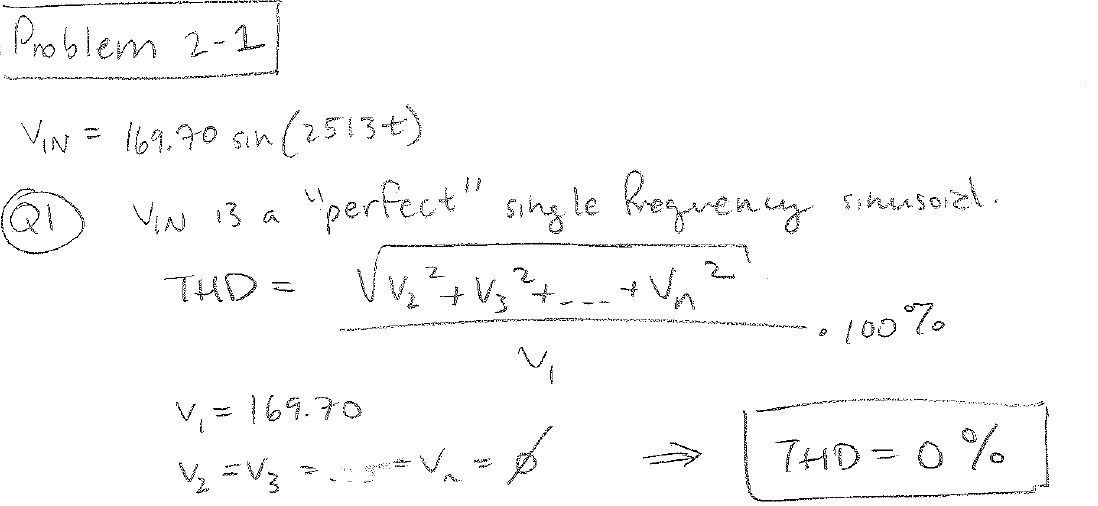 Problem 2-1
V_IN = 169.70 sin(2513t)
Q1 V_IN is a "perfect" single frequency sinusoid.
THD = √(V₂² + V₃² + ... + Vₙ²) / V₁ · 100%
V₁ = 169.70
V₂ = V₃ = ... = Vₙ = ∅ ⇒ THD = 0%